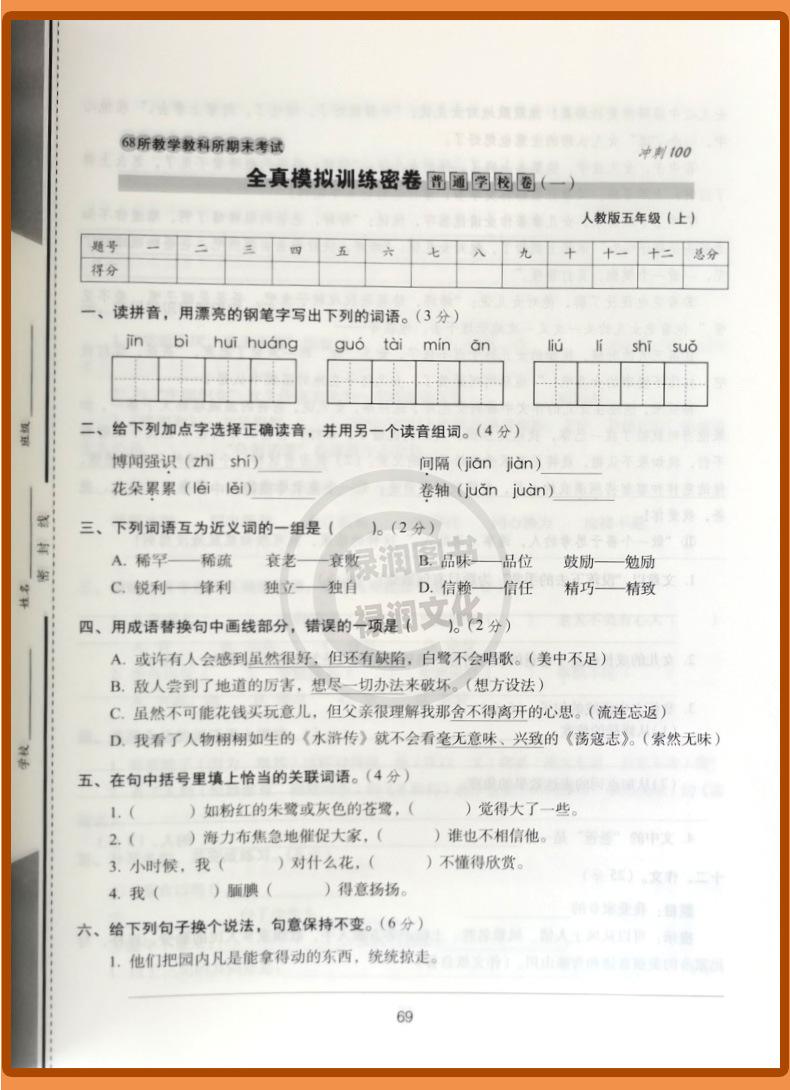 68所教学教科所期末考试
冲刺100
全真模拟训练密卷 普通学校卷(一)
人教版五年级(上)
题号 一 二 三 四 五 六 七 八 九 十 十一 十二 总分
得分
一、读拼音，用漂亮的钢笔字写出下列的词语。(3分)
jīn bì huī huáng guó tài mín ān liú lí shī suǒ
二、给下列加点字选择正确读音，并用另一个读音组词。(4分)
博闻强识(zhì shí)______ 间隔(jiān jiàn)______
花朵累累(léi lěi)______ 卷轴(juǎn juàn)______
三、下列词语互为近义词的一组是( )。(2分)
A. 稀罕——稀疏 衰老——衰败 B. 品味——品位 鼓励——勉励
C. 锐利——锋利 独立——独自 D. 信赖——信任 精巧——精致
四、用成语替换句中画线部分，错误的一项是( )。(2分)
A. 或许有人会感到虽然很好，但还有缺陷，白鹭不会唱歌。(美中不足)
B. 敌人尝到了地道的厉害，想尽一切办法来破坏。(想方设法)
C. 虽然不可能花钱买玩意儿，但父亲很理解我那舍不得离开的心思。(流连忘返)
D. 我看了人物栩栩如生的《水浒传》就不会看毫无意味、兴致的《荡寇志》。(索然无味)
五、在句中括号里填上恰当的关联词语。(4分)
1. ( )如粉红的朱鹭或灰色的苍鹭，( )觉得大了一些。
2. ( )海力布焦急地催促大家，( )谁也不相信他。
3. 小时候，我( )对什么花，( )不懂得欣赏。
4. 我( )腼腆( )得意扬扬。
六、给下列句子换个说法，句意保持不变。(6分)
1. 他们把园内凡是能拿得动的东西，统统掠走。
69
班级
姓名
学校
密封线
禄润图书
禄润文化